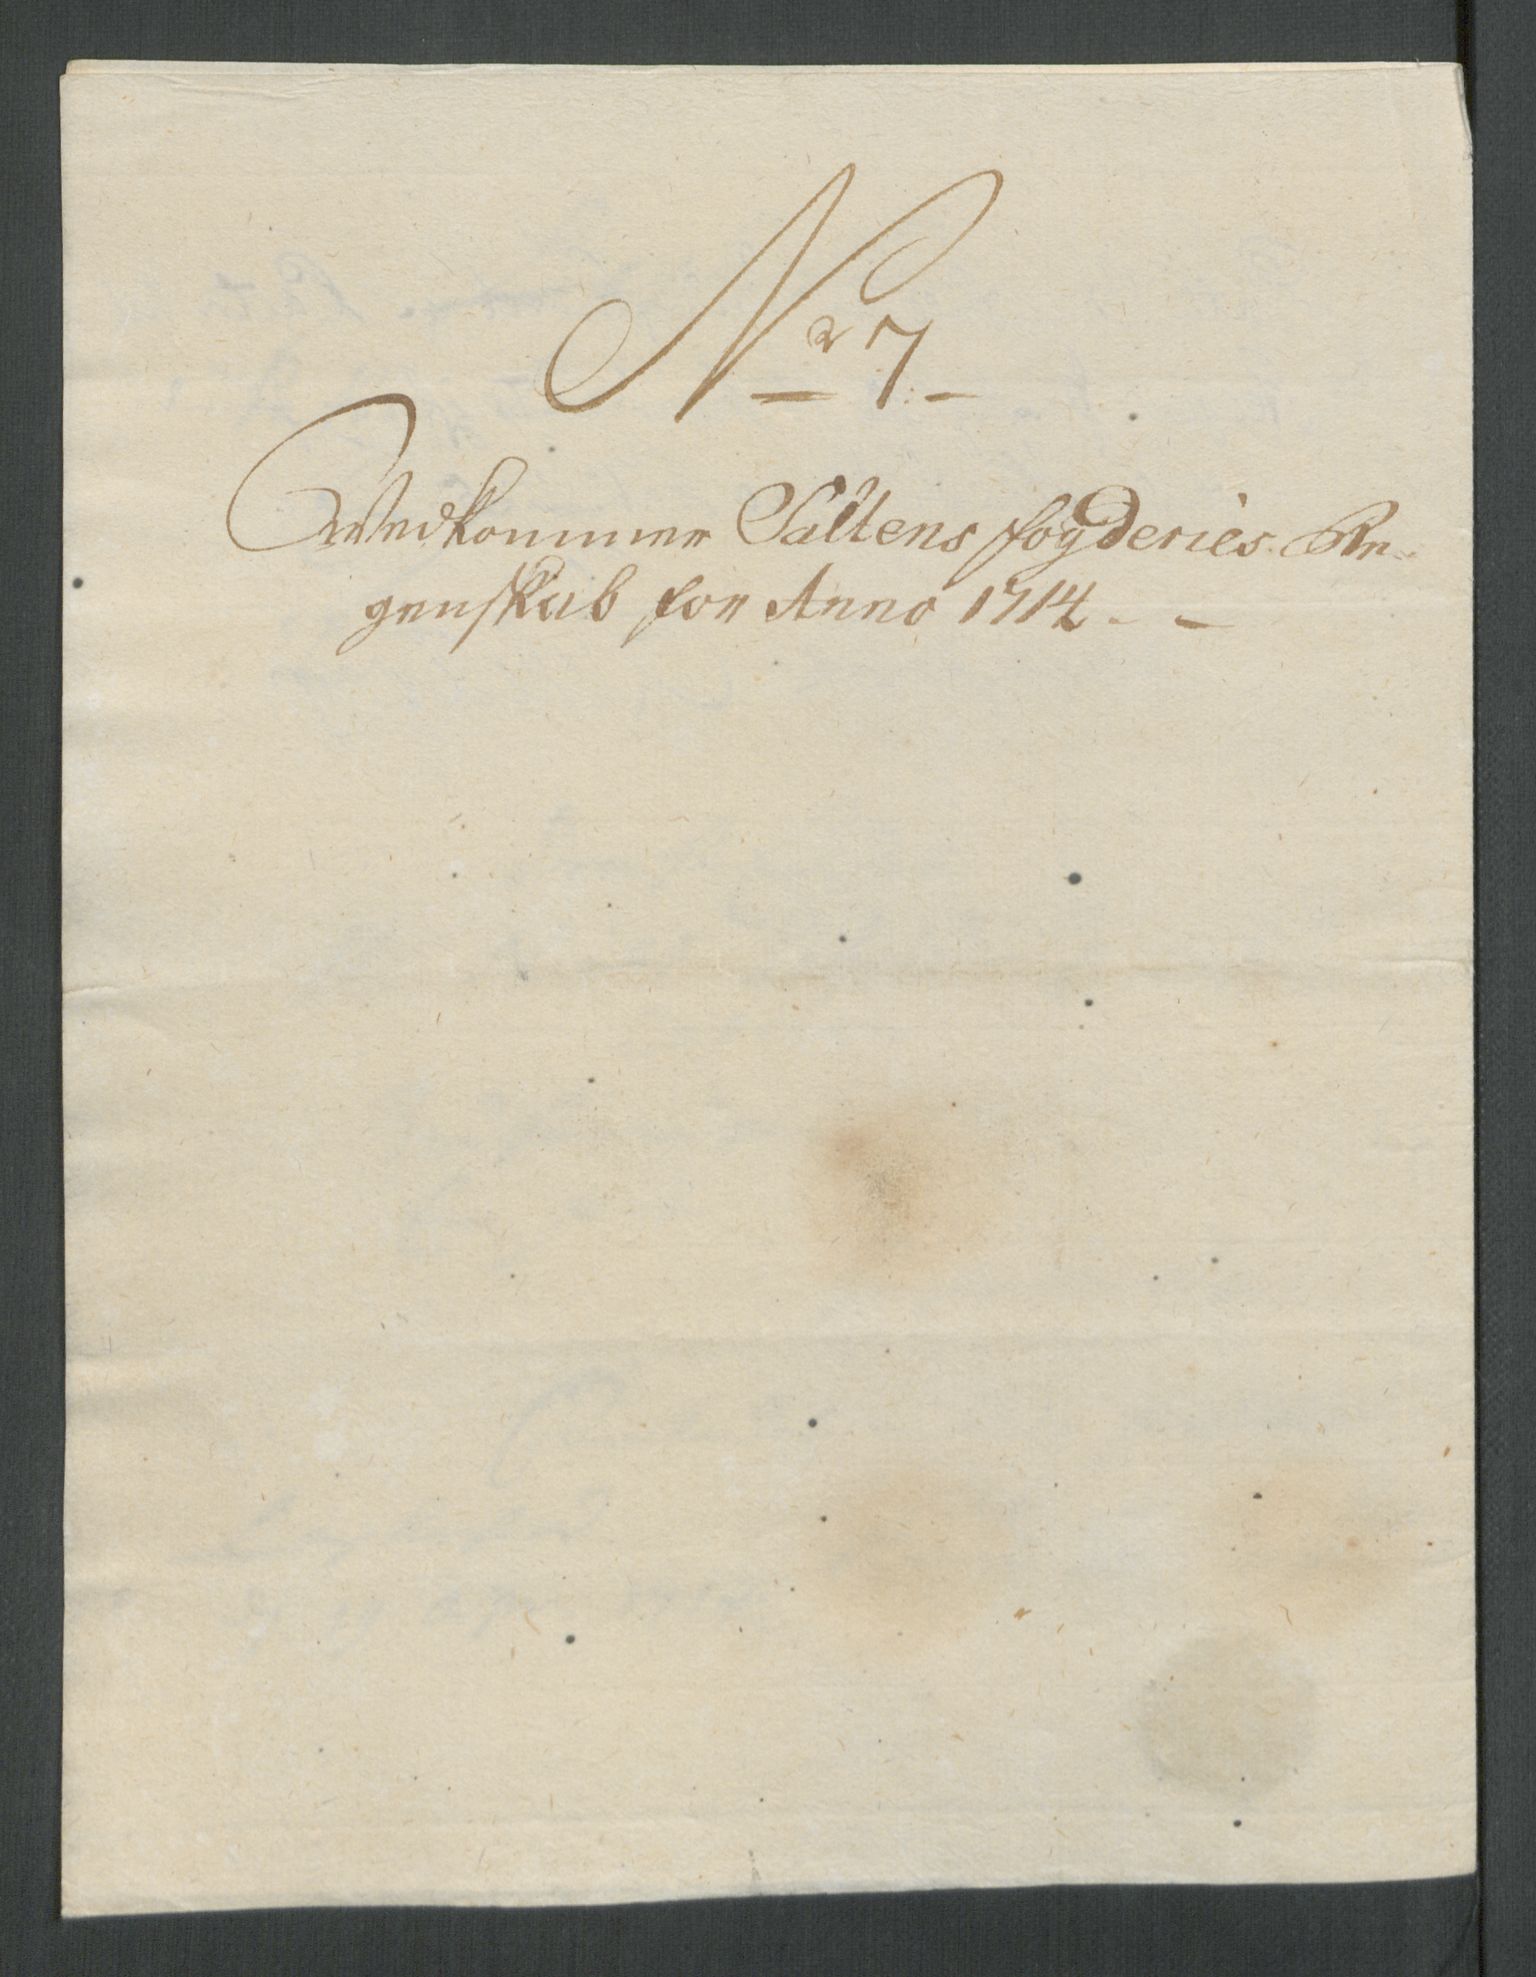 Nr 7.
Wedkommer Saltens fogderies Re-
genskab for Anno 1714.